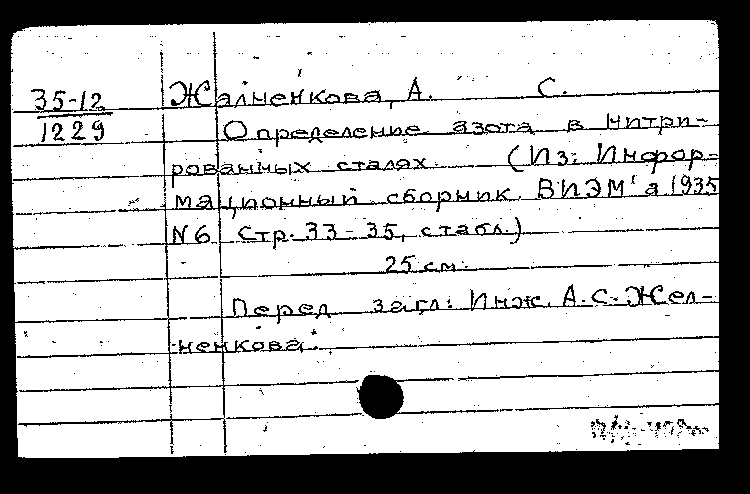 35-12
1229
Жалненкова, А. С.
Определение азота в нитри-
рованных сталях. (Из: Инфор-
мационный сборник ВИЭМ'а 1935
N6 Стр. 33-35, стабл.)
25 см.
Перед загл: Инж. А.С. Жел-
ненкова.